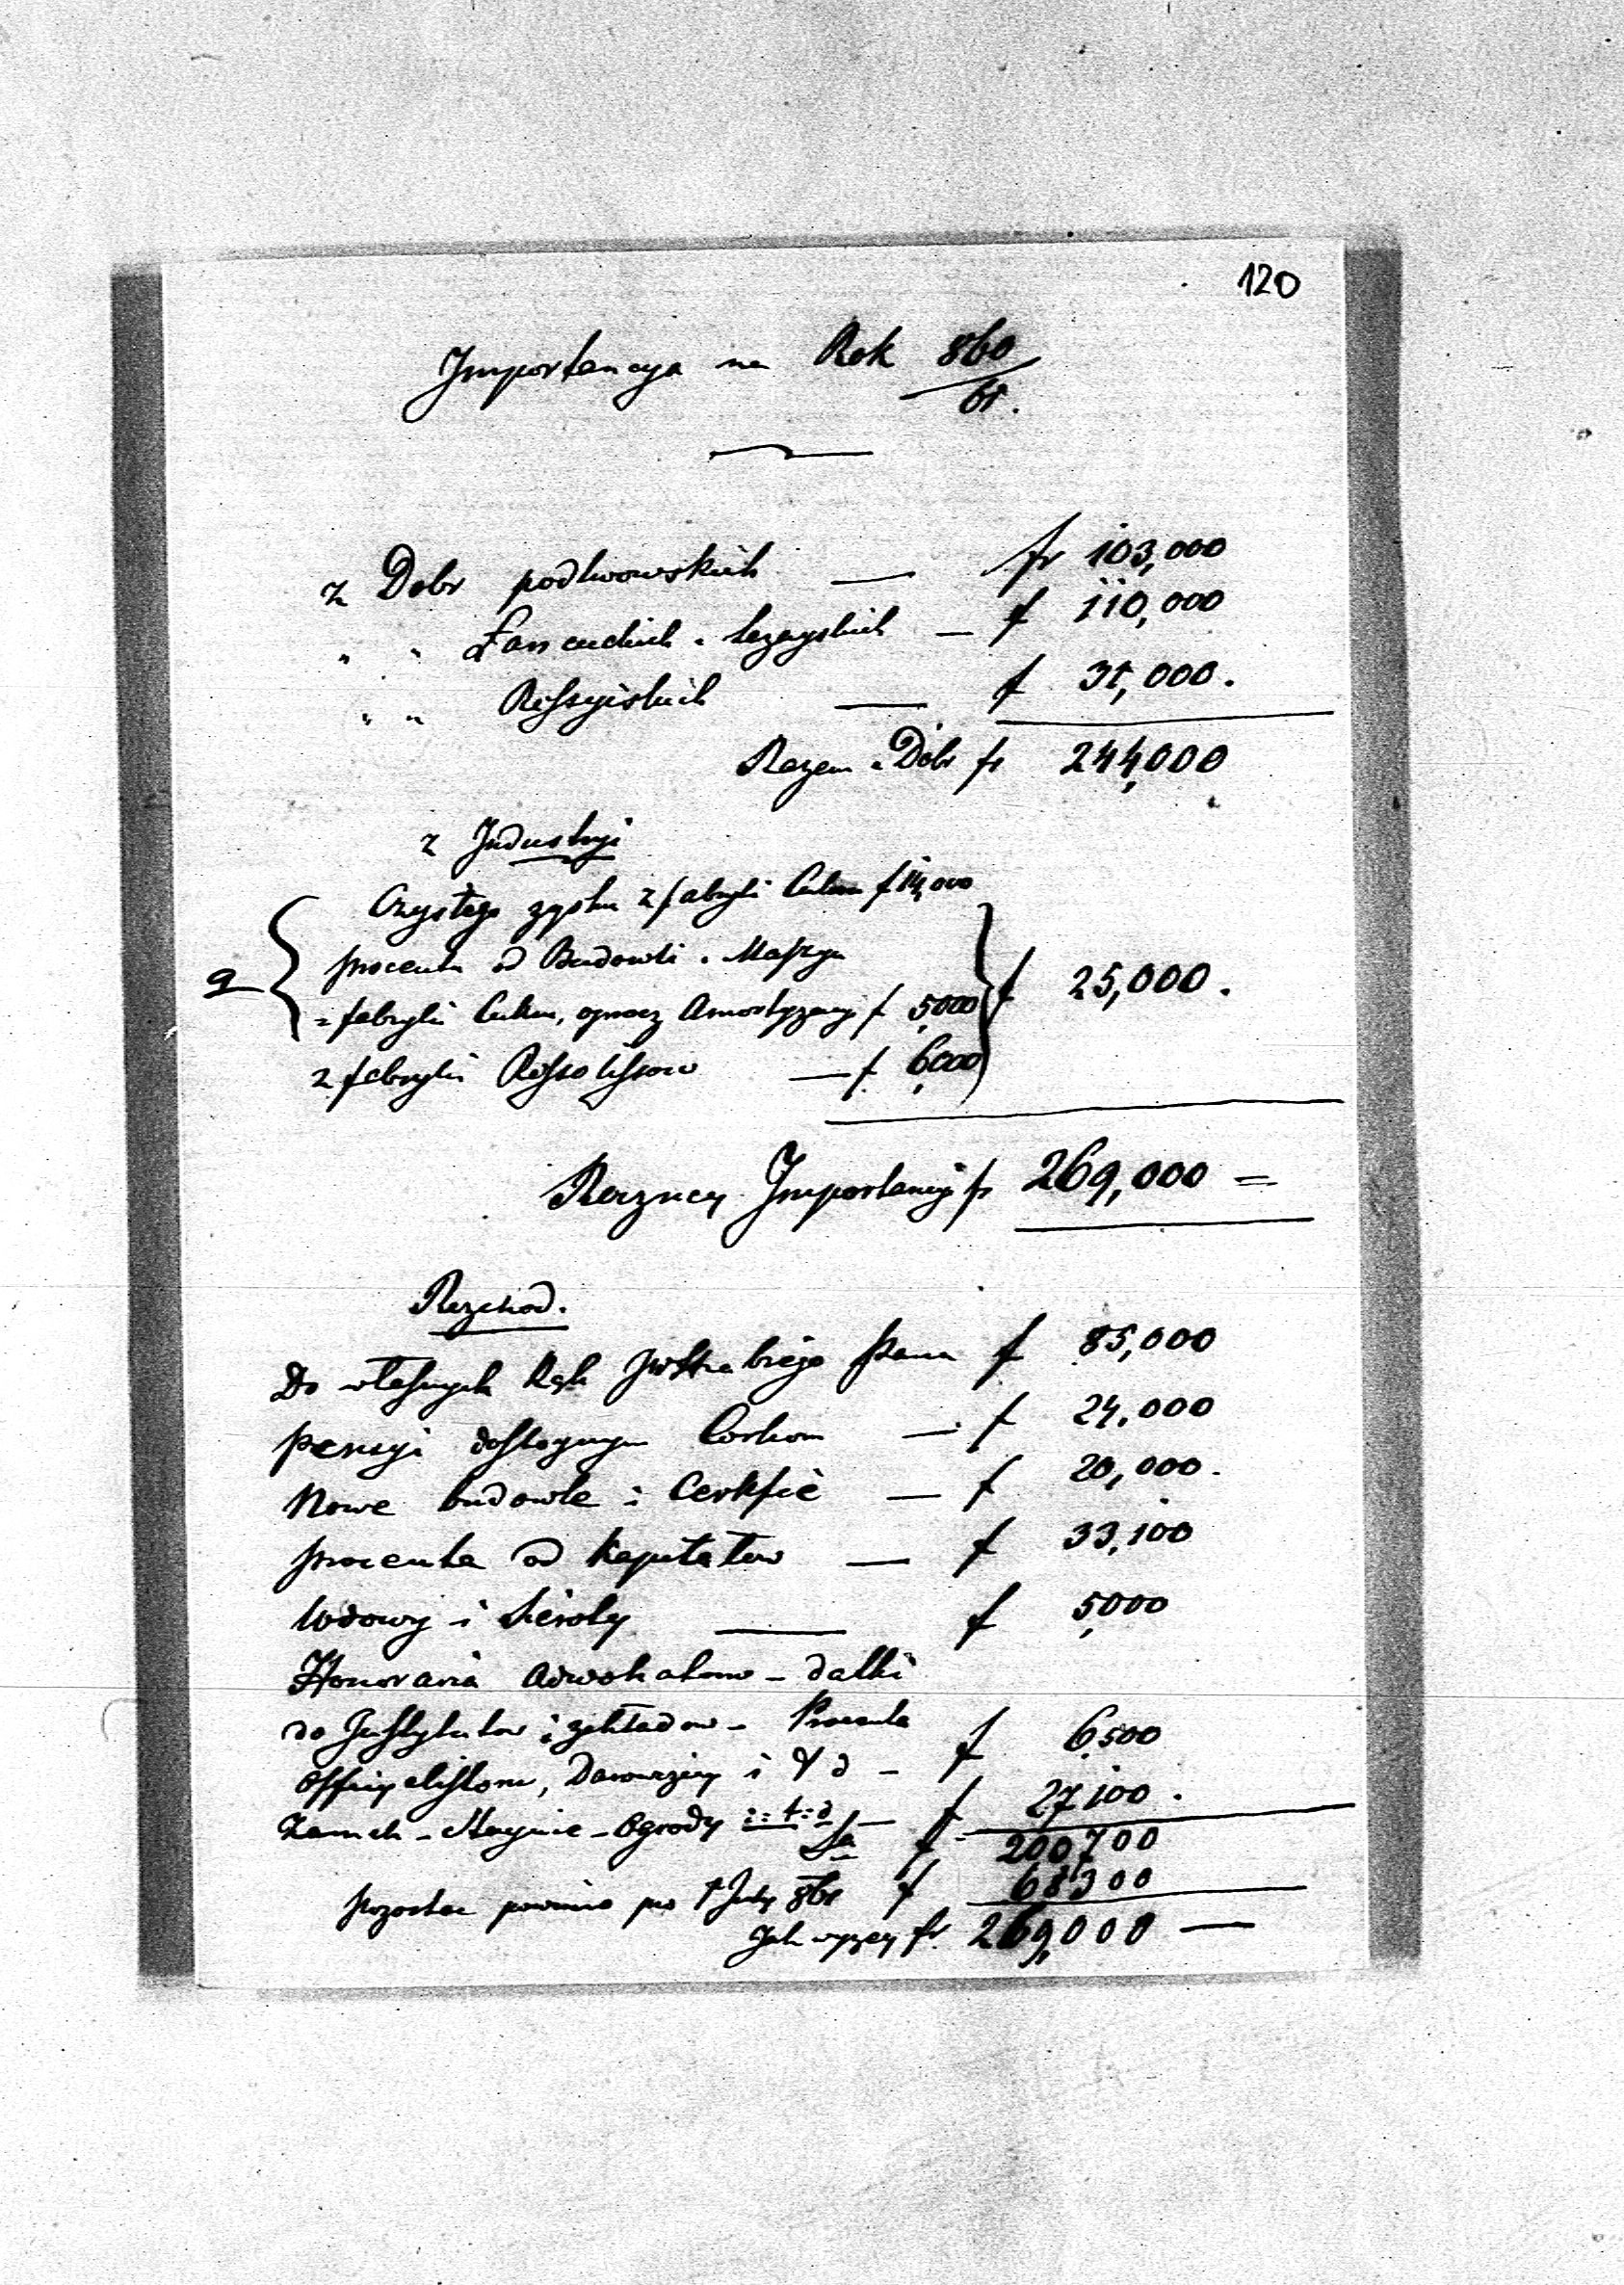 120
Importancya na Rok 860
61.
z Dobr podlwowskich — fr 103,000
" " Łancuckich i lezayskich — f 110,000
" " Rossyiskich — f 31,000.
Razem z Dobr fr 244,000
z Industryi
Czystego zysku z fabryki Cukru f 14,000
procenta od Budowli i Maszyn
z fabryki Cukru, oprocz Amortyzacyi f 5,000 f 25,000.
z fabryki Rossolissow — f 6,000
Roczney Importancyi fr 269,000 =
Rozchod.
Do własnych Rąk JWHrabiego Pana f 85,000
Pensyi dostoynym Corkom — f 24,000
Nowe budowle i Cerkfie — f 20,000.
procenta od kapitałow — f 33,100
Wdowy i Sieroty — f 5,000
Honoraria Adwokatow – datki
do Instytutow i zakładow – Procenta
Officyalistom, Darowizny i t d – f 6,500
Zamek – Staynie – Ogrody i: t: d — f 27,100.
Sa f 200,700
pozostac powinno pro 1 July 861 f 68300
Jak wyzey fr. 269,000 —